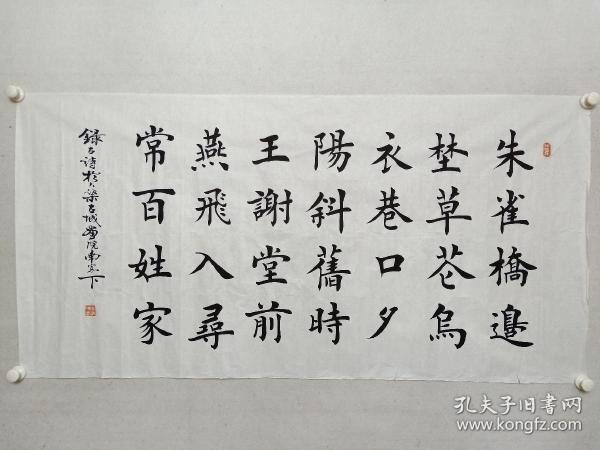 朱雀橋邊
埜草芲烏
衣巷口夕
陽斜舊時
王謝堂前
燕飛入尋
常百姓家
錄古詩於梁古城畫院南窓下
孔夫子旧書网
www.kongfz.com